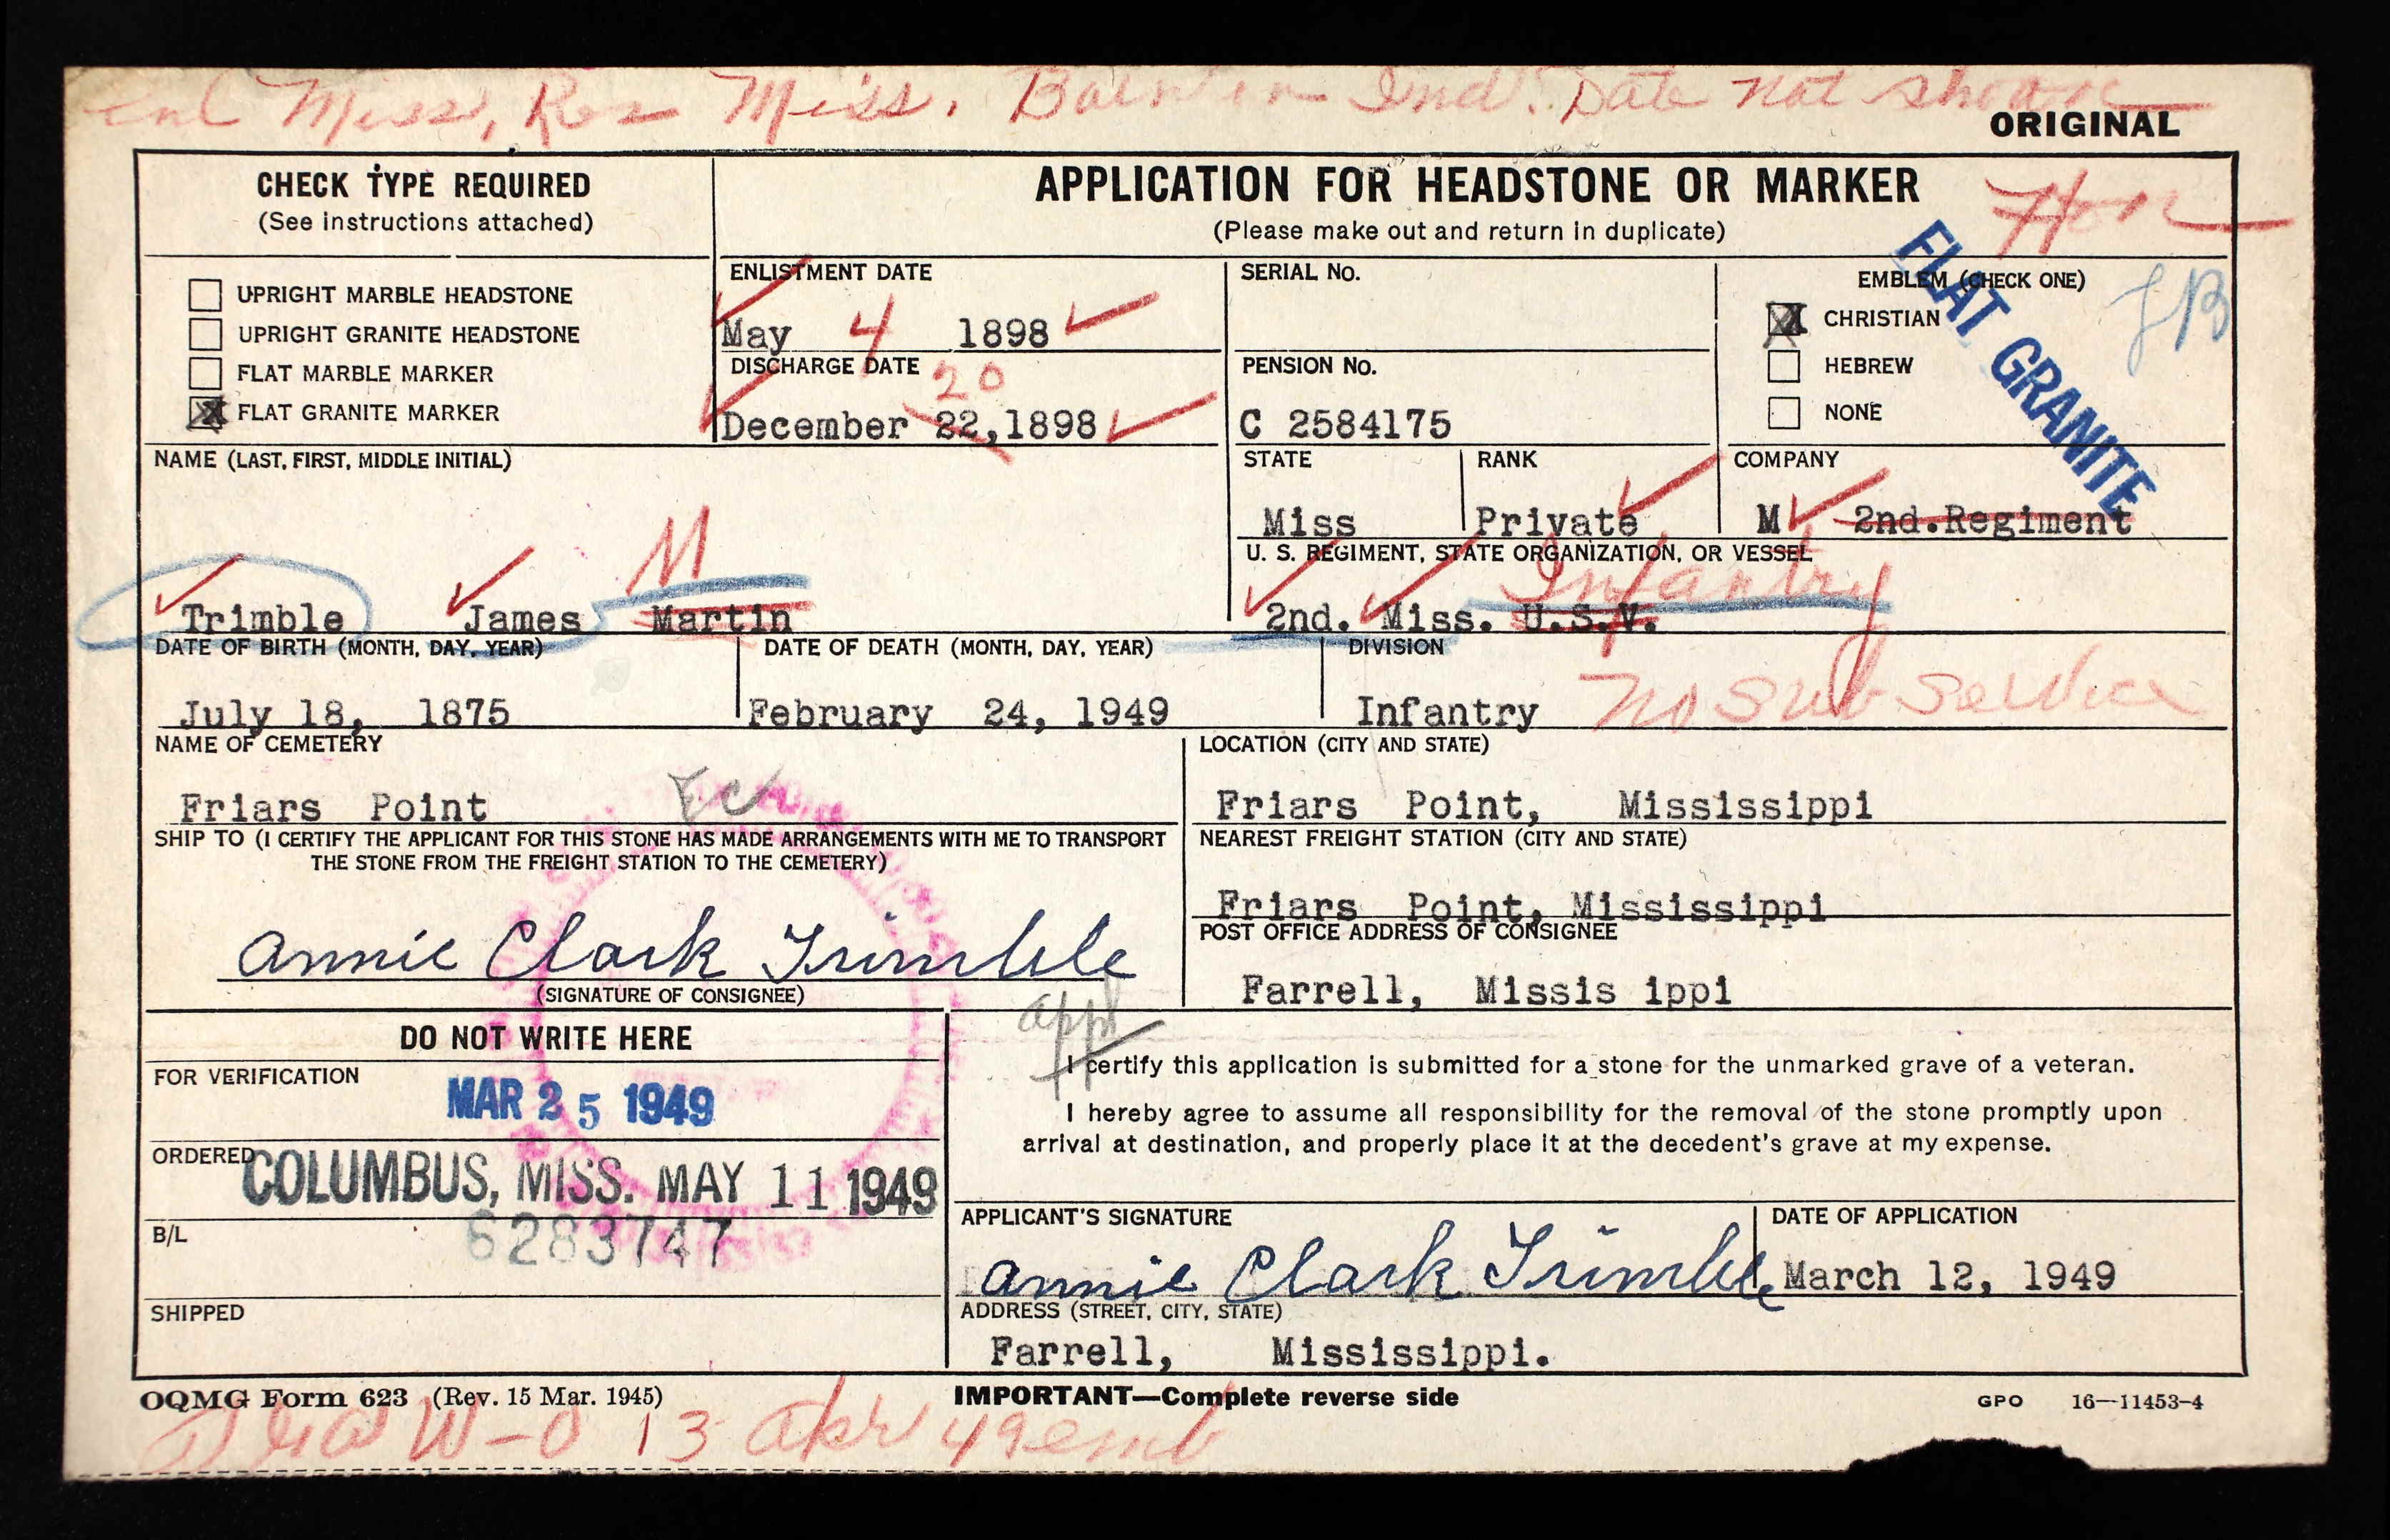 enl Miss, Res Miss. Born in Ind. Date not shown
ORIGINAL
CHECK TYPE REQUIRED
(See instructions attached)
UPRIGHT MARBLE HEADSTONE
UPRIGHT GRANITE HEADSTONE
FLAT MARBLE MARKER
X FLAT GRANITE MARKER
APPLICATION FOR HEADSTONE OR MARKER
(Please make out and return in duplicate)
Hon
FLAT GRANITE
ENLISTMENT DATE
May 4 1898
DISCHARGE DATE
20
December 22, 1898
SERIAL No.
PENSION No.
C 2584175
EMBLEM (CHECK ONE)
X CHRISTIAN
HEBREW
NONE
JB
NAME (LAST, FIRST, MIDDLE INITIAL)
M
Trimble James Martin
STATE
Miss
RANK
Private
COMPANY
M 2nd.Regiment
U. S. REGIMENT, STATE ORGANIZATION, OR VESSEL
Infantry
2nd. Miss. U.S.V.
DATE OF BIRTH (MONTH, DAY, YEAR)
July 18, 1875
DATE OF DEATH (MONTH, DAY, YEAR)
February 24, 1949
DIVISION
Infantry
no sub service
NAME OF CEMETERY
Friars Point
LOCATION (CITY AND STATE)
Friars Point, Mississippi
SHIP TO (I CERTIFY THE APPLICANT FOR THIS STONE HAS MADE ARRANGEMENTS WITH ME TO TRANSPORT
THE STONE FROM THE FREIGHT STATION TO THE CEMETERY)
Annie Clark Trimble
(SIGNATURE OF CONSIGNEE)
NEAREST FREIGHT STATION (CITY AND STATE)
Friars Point, Mississippi
POST OFFICE ADDRESS OF CONSIGNEE
Farrell, Missis ippi
DO NOT WRITE HERE
FOR VERIFICATION
MAR 25 1949
ORDERED
COLUMBUS, MISS. MAY 11 1949
B/L
6283747
SHIPPED
appl
I certify this application is submitted for a stone for the unmarked grave of a veteran.
I hereby agree to assume all responsibility for the removal of the stone promptly upon
arrival at destination, and properly place it at the decedent's grave at my expense.
APPLICANT'S SIGNATURE
Annie Clark Trimble
DATE OF APPLICATION
March 12, 1949
ADDRESS (STREET, CITY, STATE)
Farrell, Mississippi.
OQMG Form 623 (Rev. 15 Mar. 1945)
IMPORTANT—Complete reverse side
GPO 16—11453-4
13 Apr 49 emb